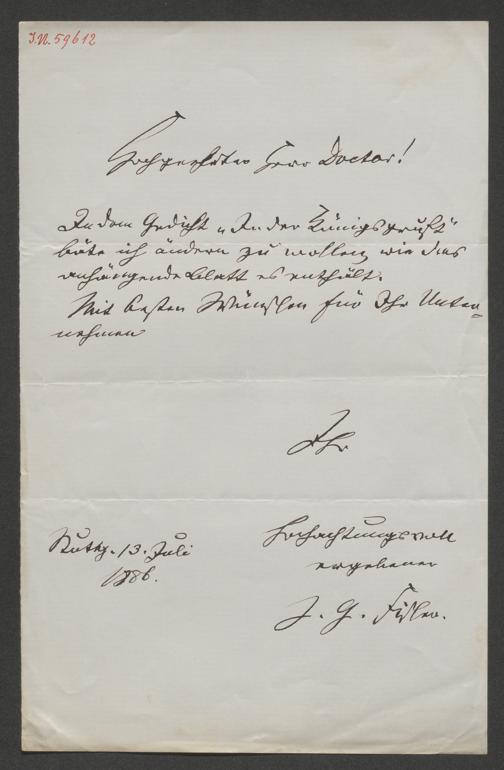 I.N. 59612
Hochgeehrter Herr Doctor!
In dem Gedicht „In der Königsgruft“
bäte ich ändern zu wollen, wie das
anhängende Blatt es enthält.
Mit besten Wünschen für Ihr Unter-
nehmen
Ihr
Hochachtungsvoll
ergebener
J. G. Fischer.
Stuttg. 13. Juli
1886.